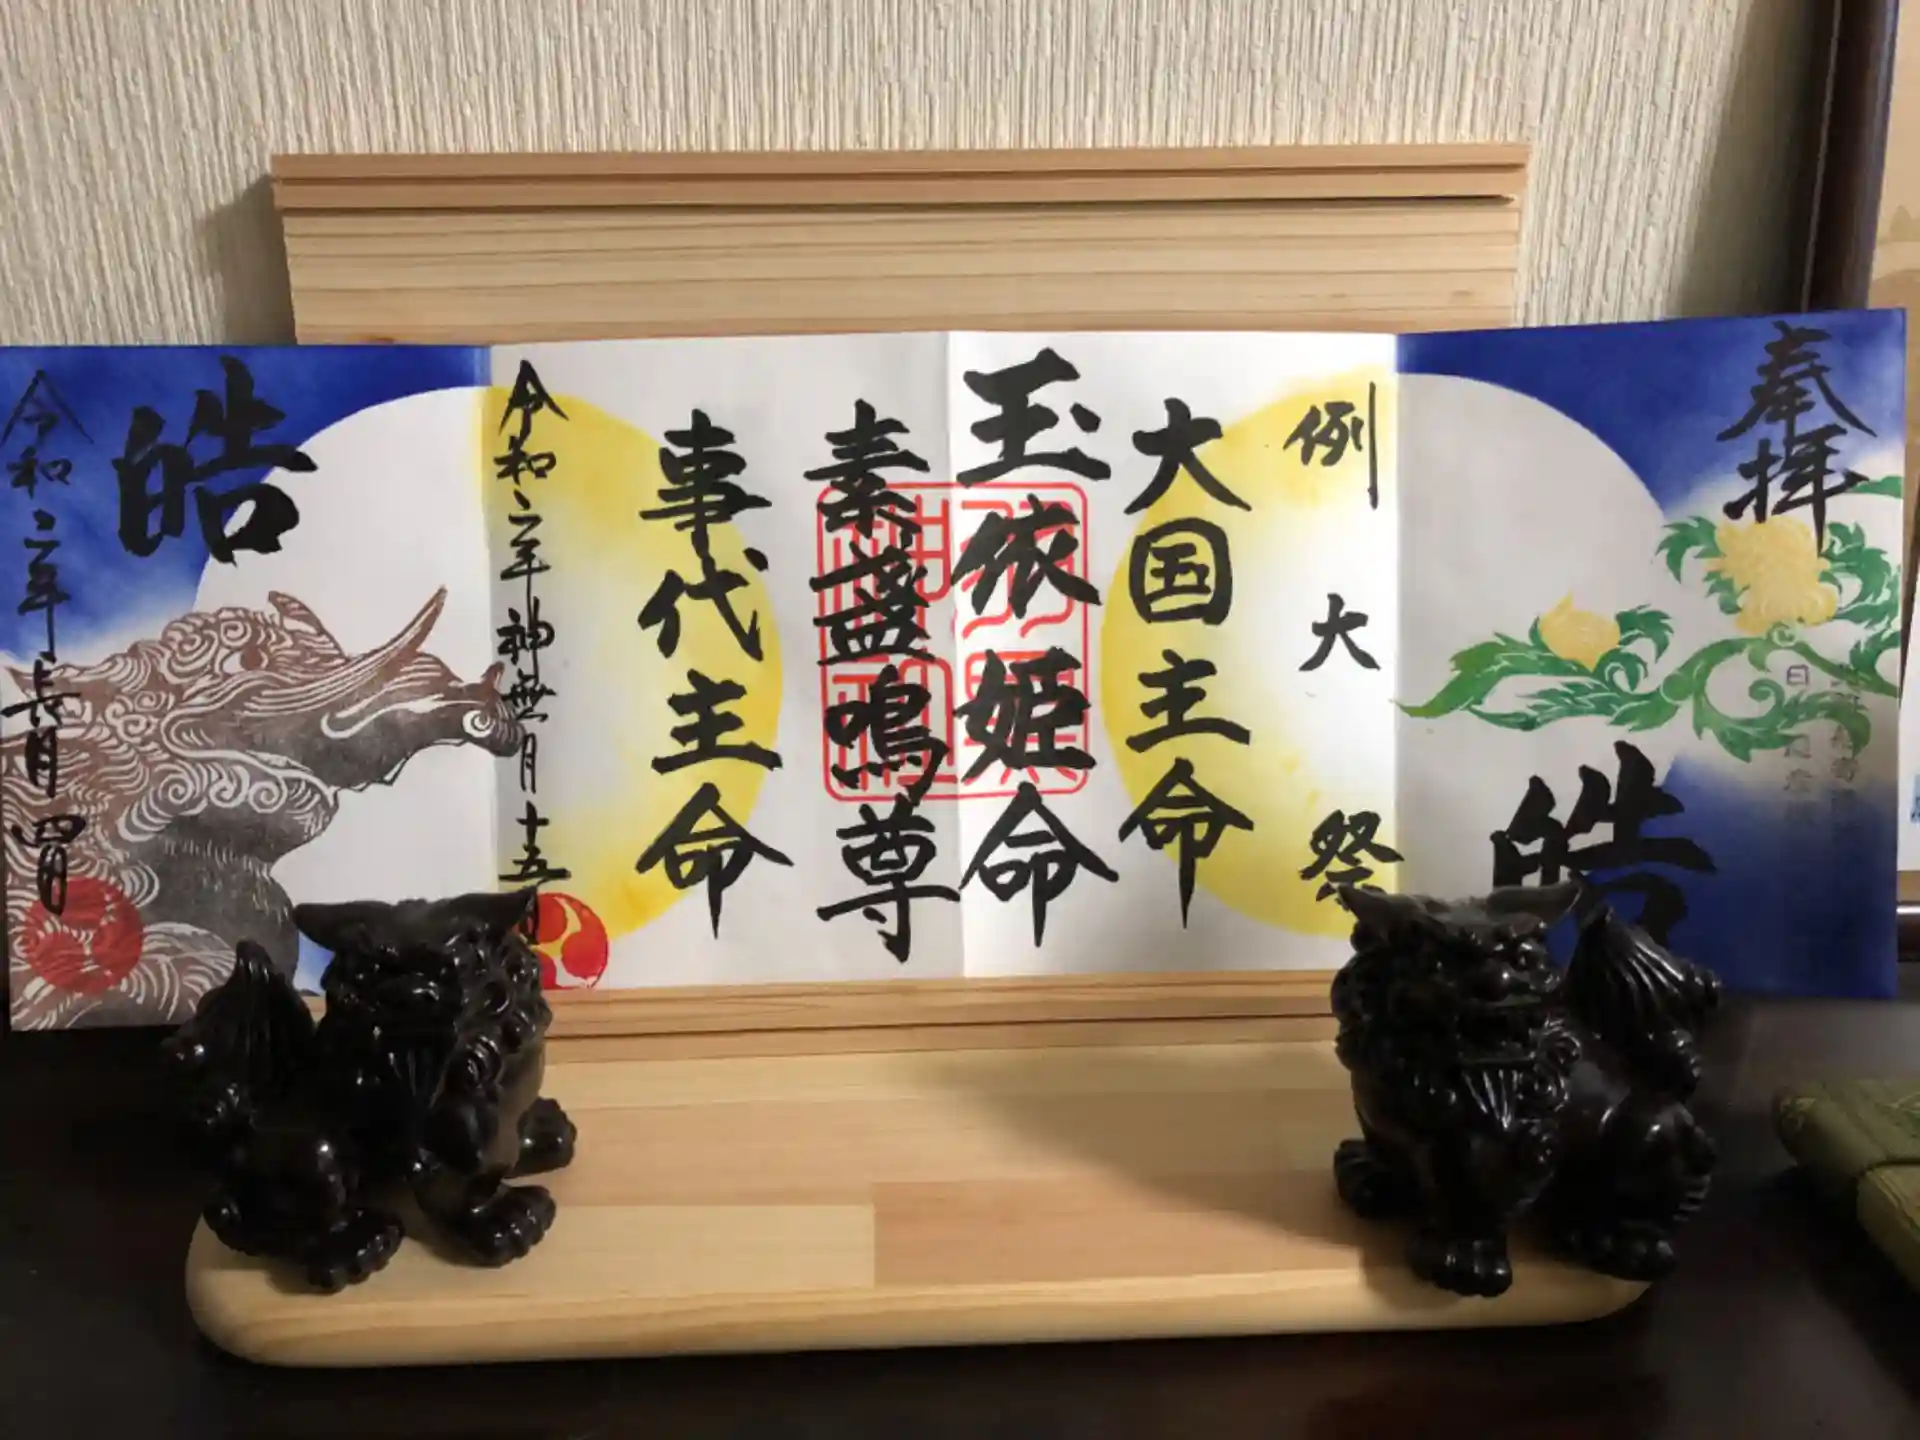 奉拝
皓
例大祭
大国主命
玉依姫命
素盞鳴尊
事代主命
令和二年神無月十五日
皓
令和二年長月四日